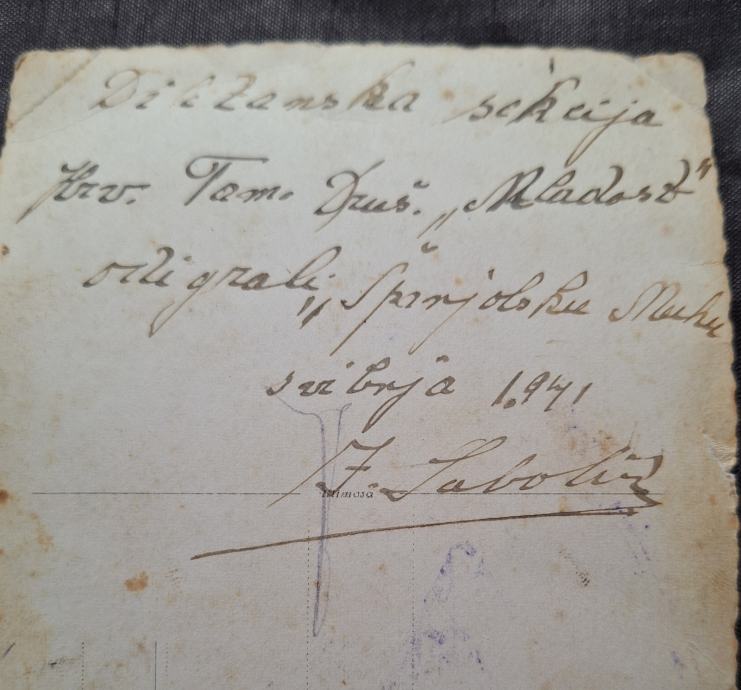 Diližanska sekcija
Hrv. Tam. Druš. „Mladost"
odigrali „Španjolsku Muhu
svibnja 1941
Mimosa